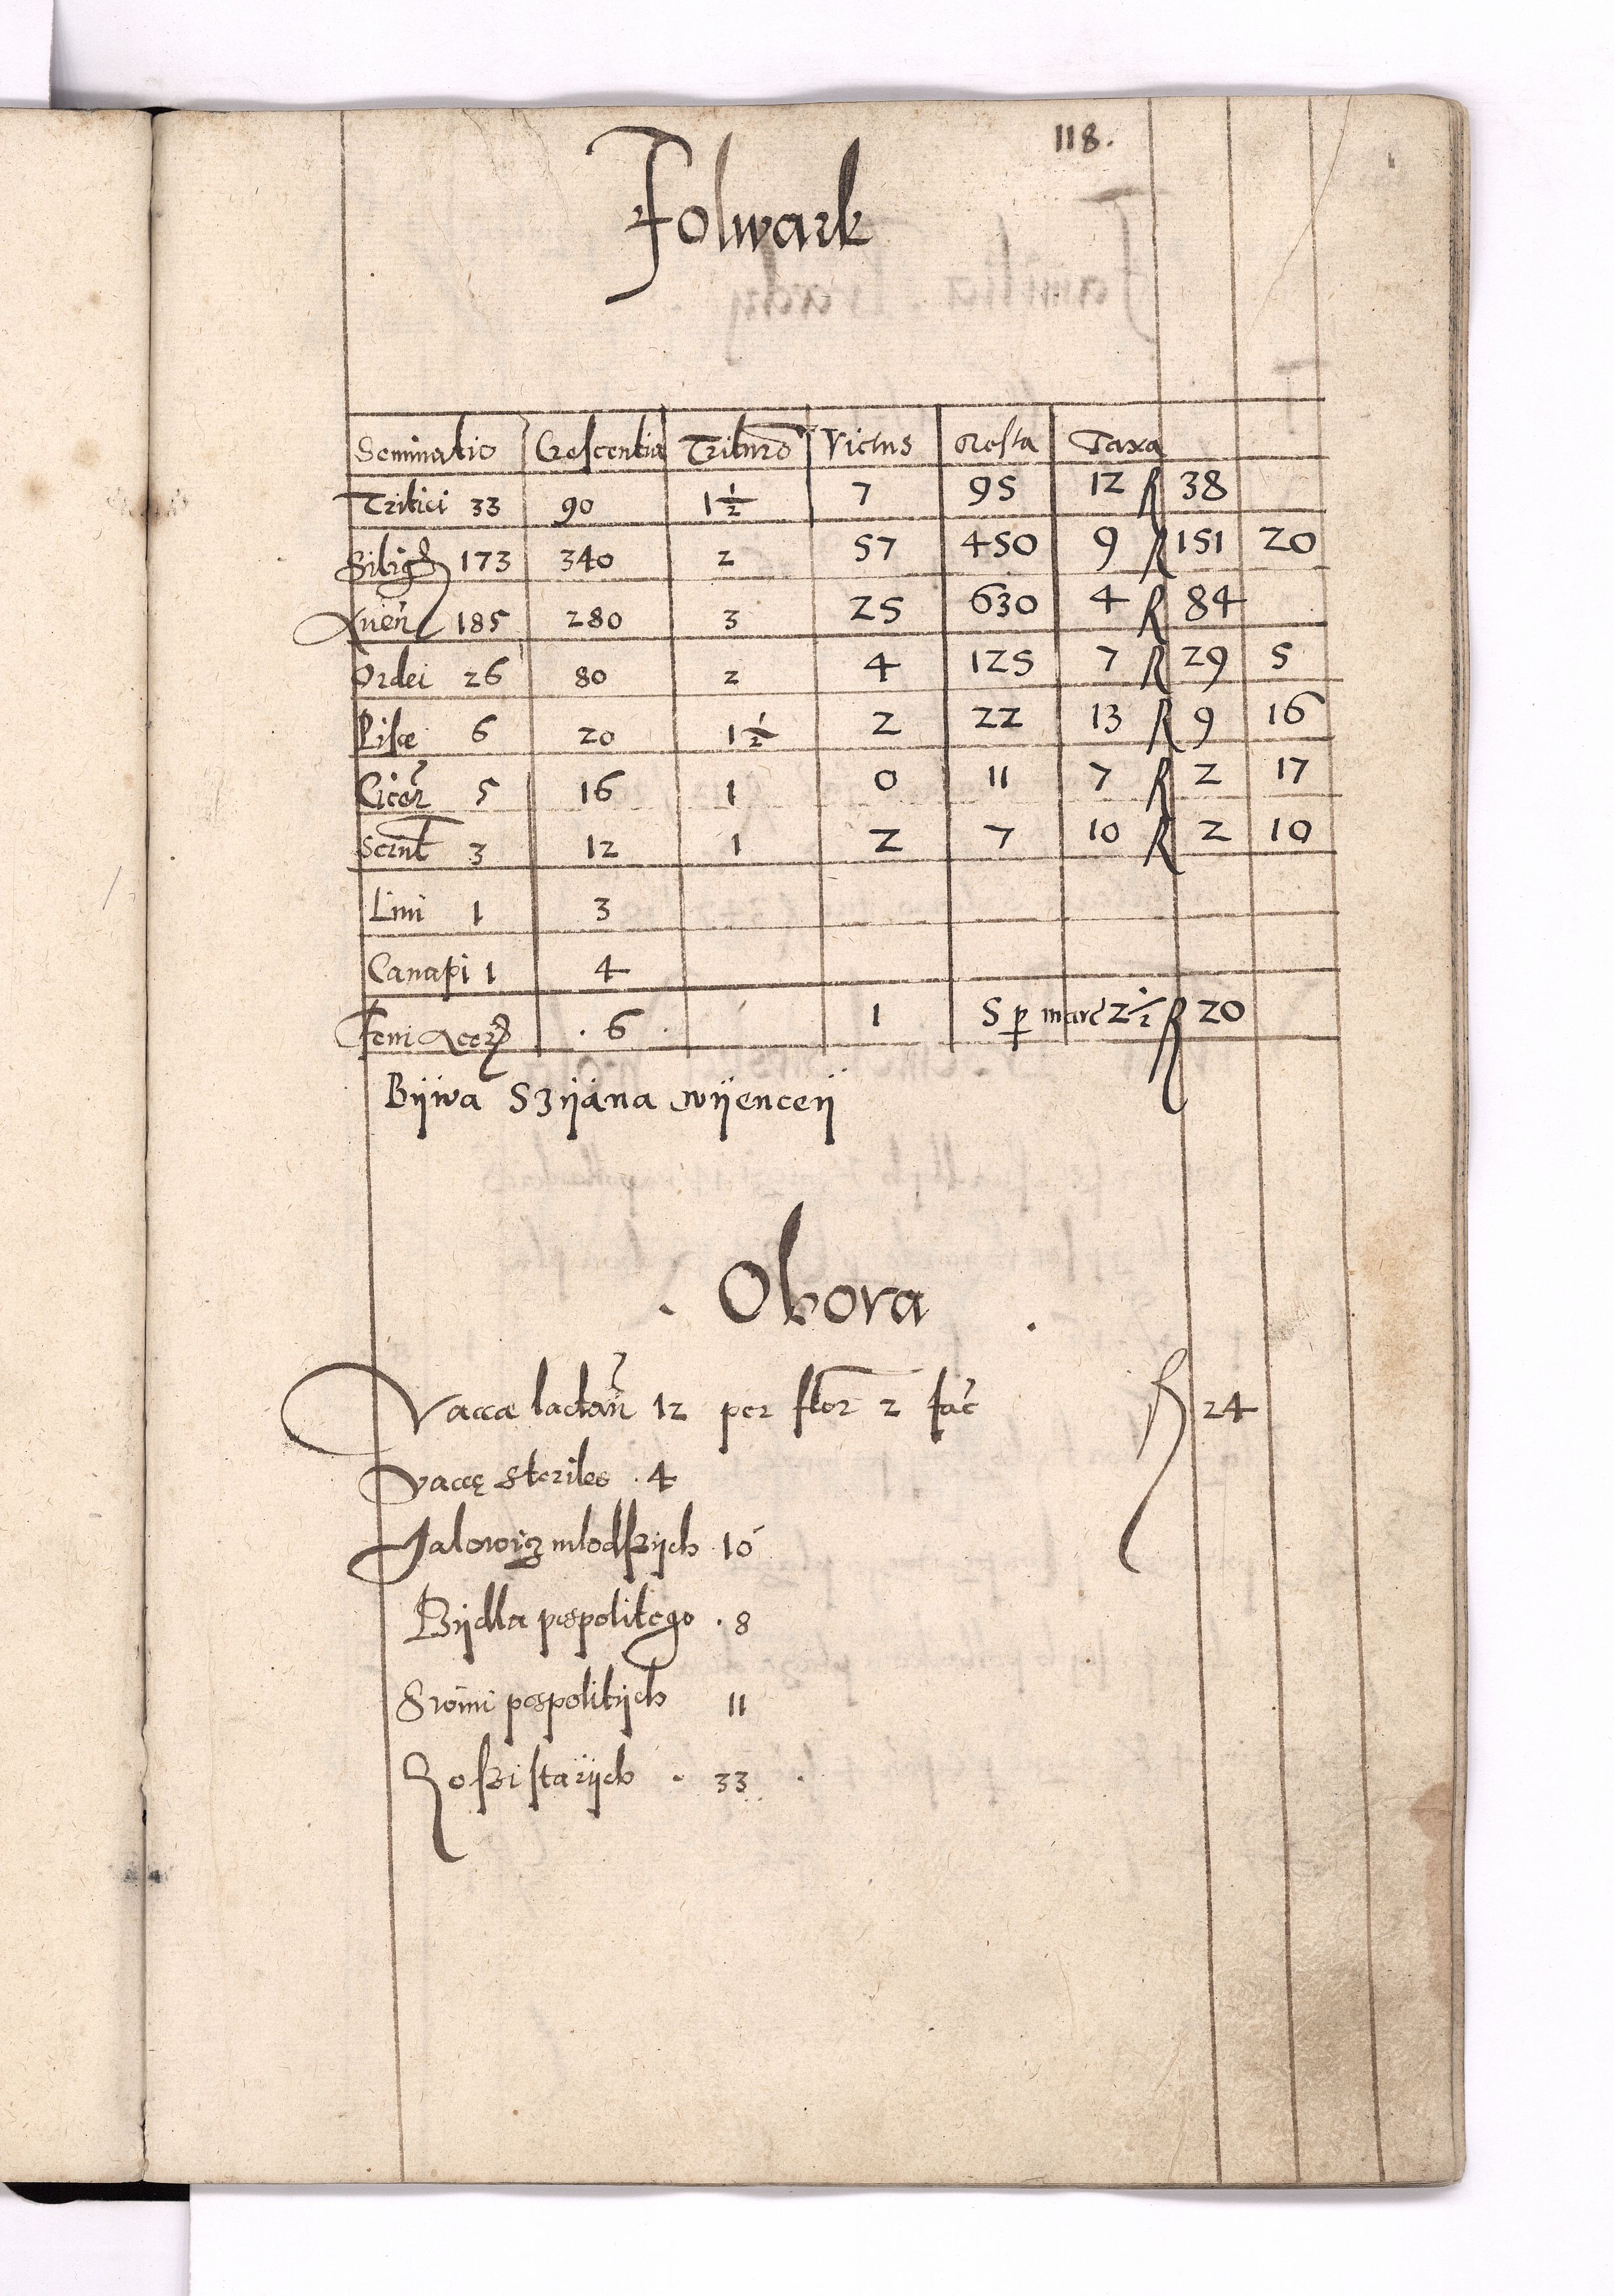 118.
Folwark
Seminatio Crescentia Triturõ Victus Resta Taxa
Tritici 33 90 1½ 7 95 12 R 38
Silig 173 340 2 57 450 9 R 151 20
Aven 185 280 3 25 630 4 R 84
Ordei 26 80 2 4 125 7 R 29 5
Pisæ 6 20 1½ 2 22 13 R 9 16
Cicer 5 16 1 0 11 7 R 2 17
3 12 1 2 7 10 R 2 10
Lini 1 3
Canapi 1 4
Feni Acer . 6 . 1 5 p marc 2½ R 20
Bÿwa Szÿána wÿencеÿ
. Obora .
Vaccæ lactan 12 per flor 2 fac R 24
Vaccę steriles . 4
Jalowicz mlodszÿch 10
Bÿdla pospolitego . 8
Swini pospolitÿch 11
starÿch . 33 .